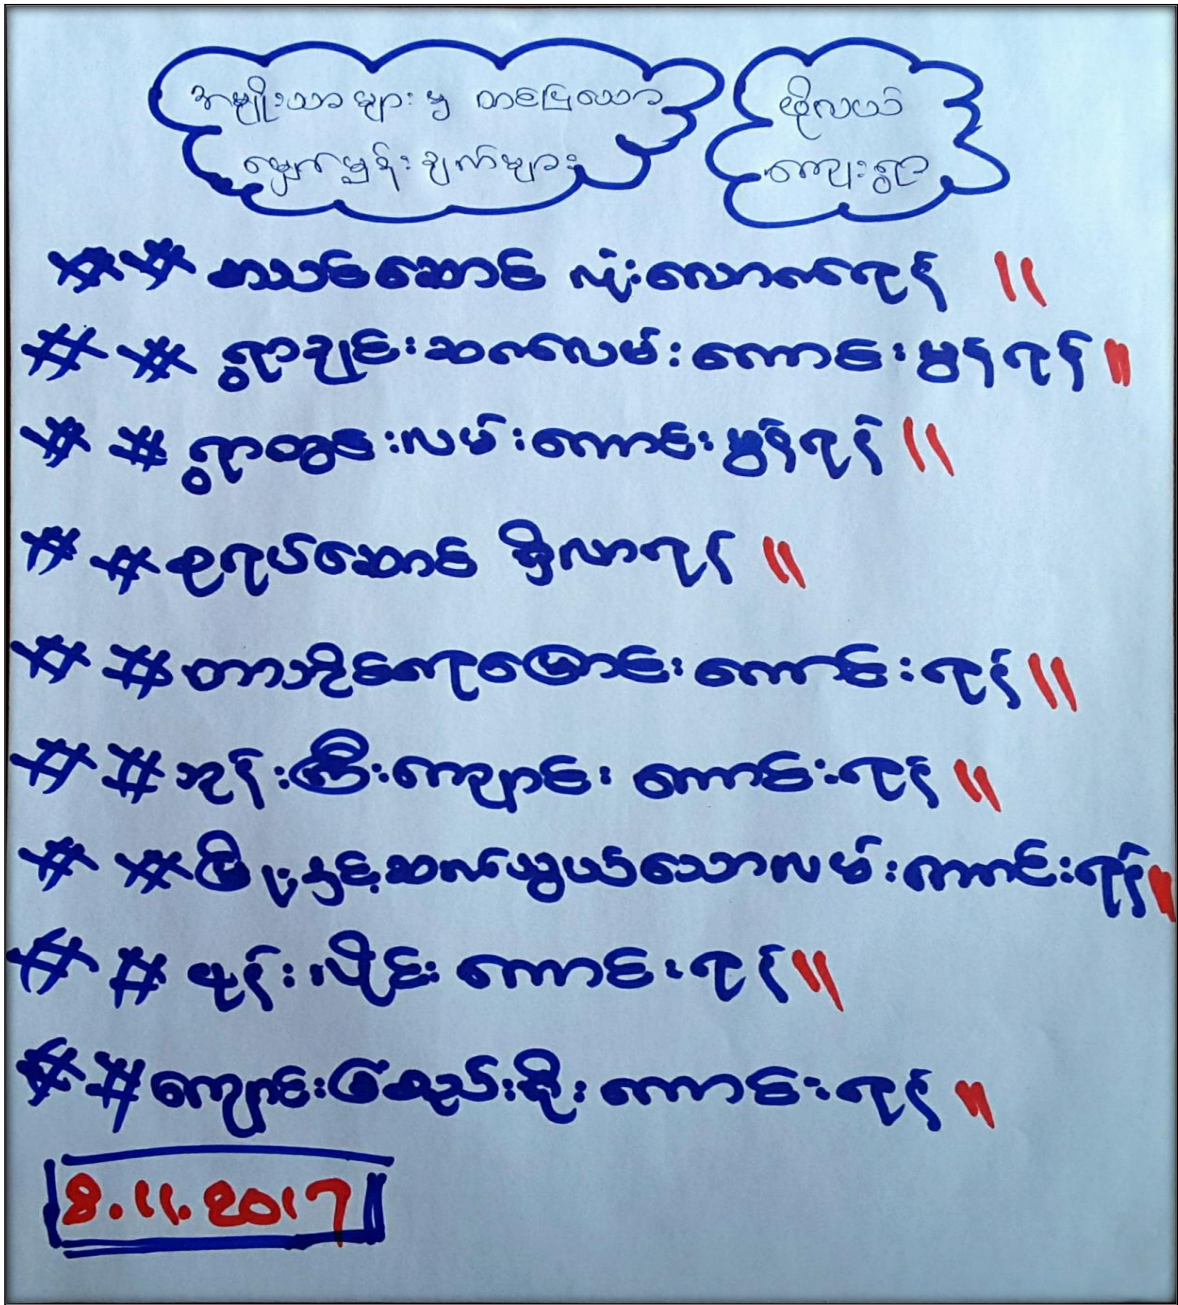 အမျိုးသားများမှ တင်ပြသော
မျှော်မှန်းချက်များ
ဖိုလယ်
ကျေးရွာ
## စာသင်ဆောင် လုံလောက်ရန် ။
## ရွာချင်းဆက်လမ်းကောင်းမွန်ရန် ။
## ရွာတွင်းလမ်းကောင်းမွန်ရန် ။
## စုရပ်ဆောင် ရှိလာရန် ။
## တာဘိုင်ရေမြောင်းကောင်းရန် ။
## ဘုန်းကြီးကျောင်း ကောင်းရန် ။
## မြို့နှင့်ဆက်သွယ်သောလမ်းကောင်းရန် ။
## ဖုန်းလိုင်းကောင်းရန် ။
## ကျောင်းခြံစည်းရိုးကောင်းရန် ။
8.11.2017